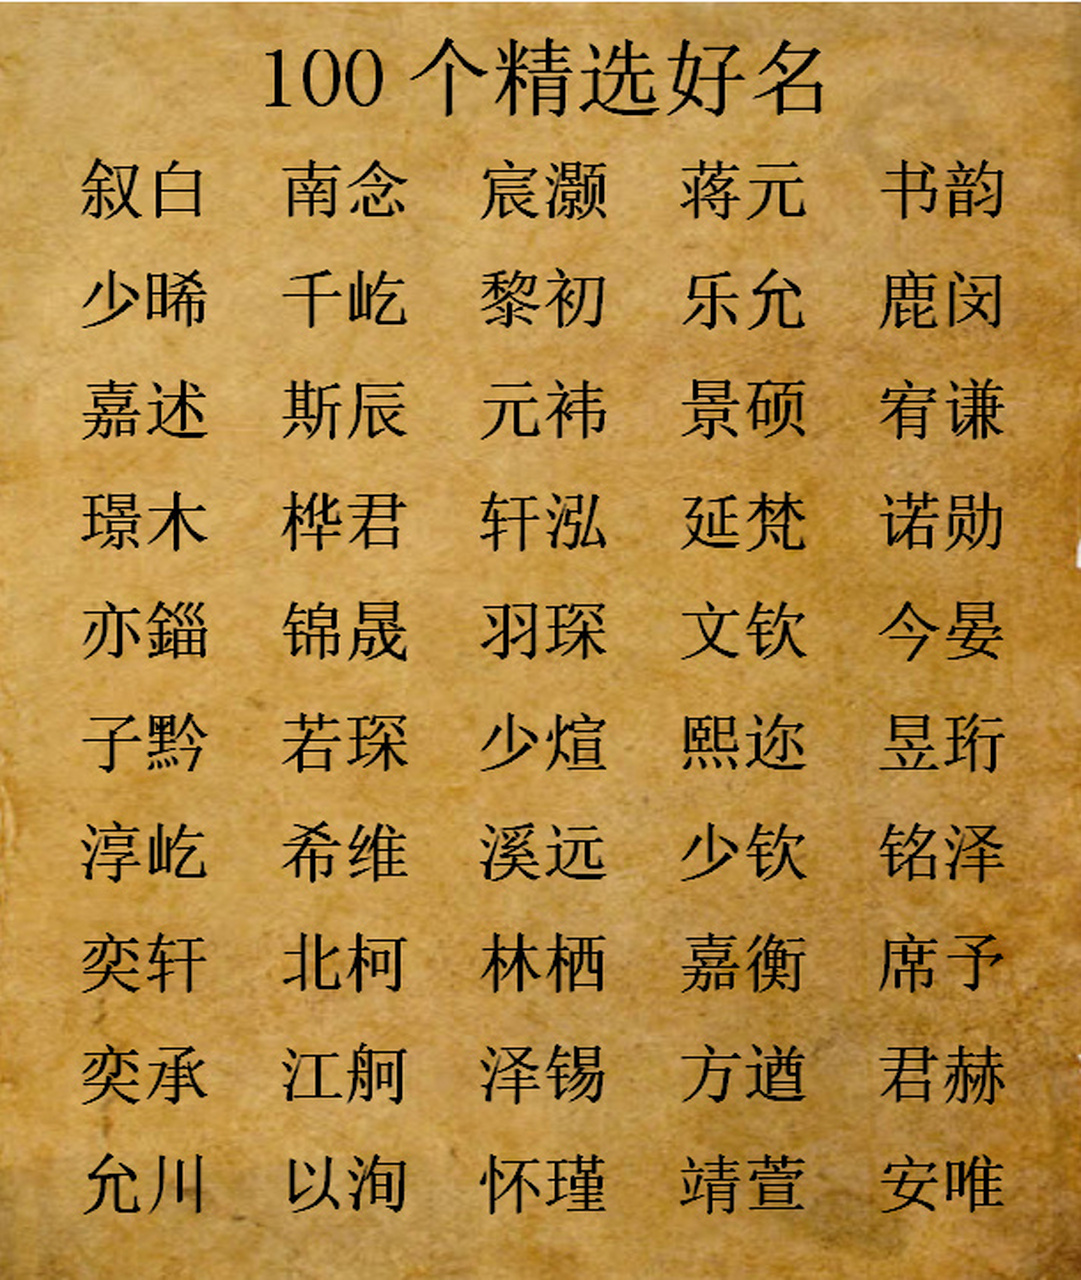 100个精选好名
叙白 南念 宸灏 蒋元 书韵
少晞 千屹 黎初 乐允 鹿闵
嘉述 斯辰 元祎 景硕 宥谦
璟木 桦君 轩泓 延梵 诺勋
亦錙 锦晟 羽琛 文钦 今晏
子黔 若琛 少煊 熙迩 昱珩
淳屹 希维 溪远 少钦 铭泽
奕轩 北柯 林栖 嘉衡 席予
奕承 江舸 泽锡 方遒 君赫
允川 以洵 怀瑾 靖萱 安唯